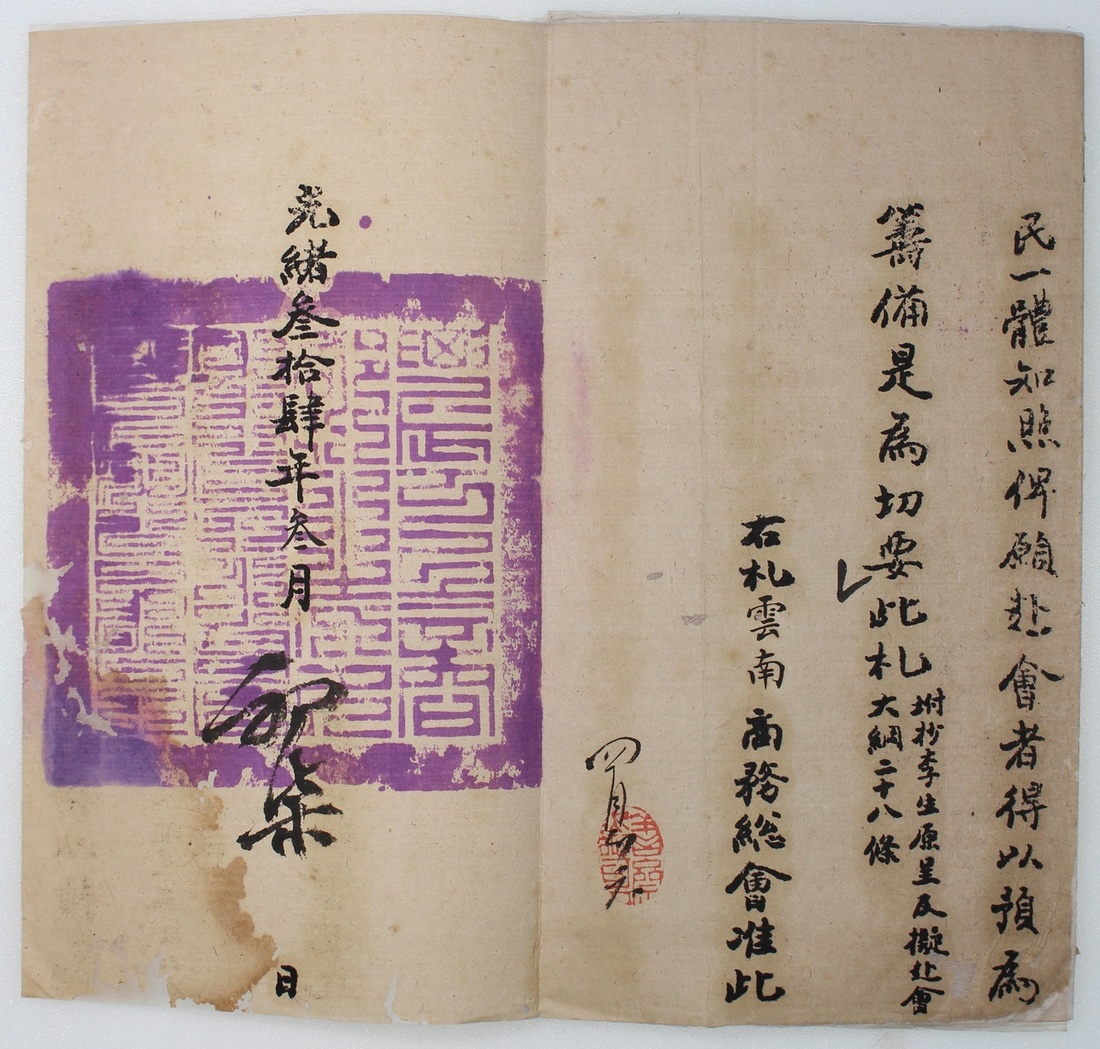 民一體知照俾願赴會者得以預為
籌備是為切要此札
附抄李生原呈及擬赴會
大綱二十八條
右札雲南商務總會准此
四月
光緒叁拾肆年叁月
初柒
日